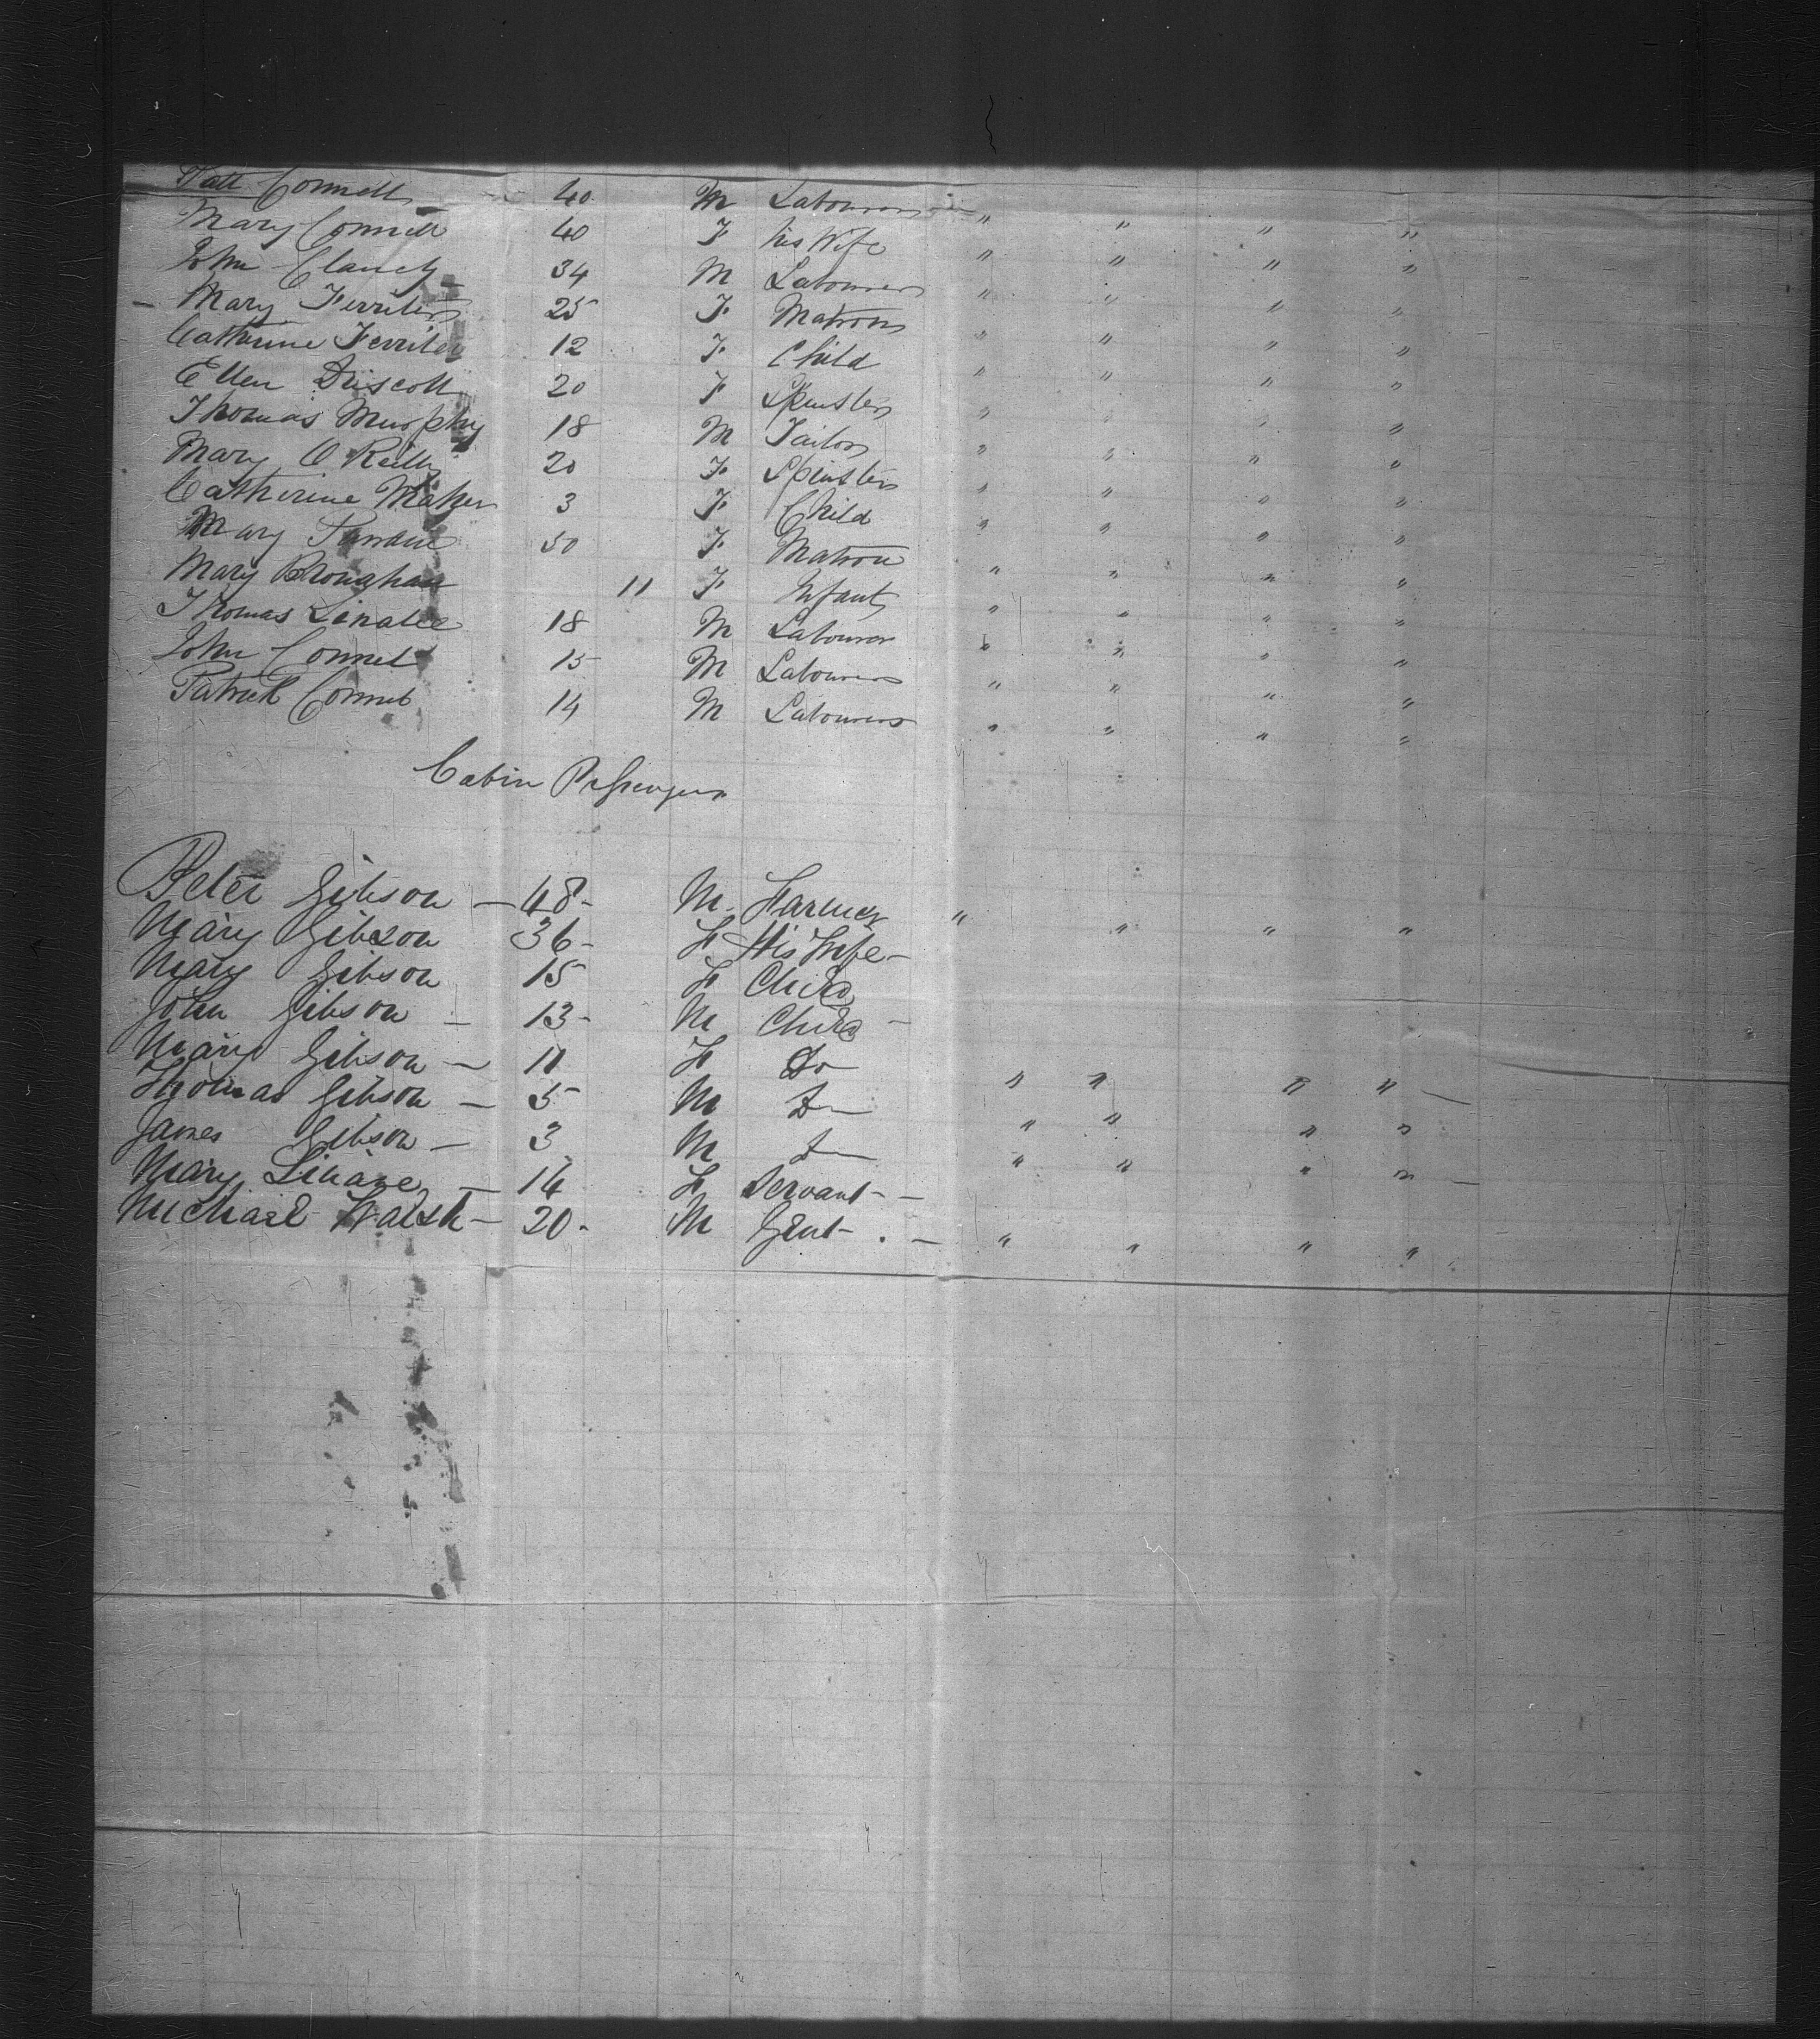 Patt Connell 40 M Labourer " " " "
Mary Connell 40 F his Wife " " " "
John Clancy 34 M Labourer " " " "
Mary Ferriter 25 F Matron " " " "
Catherine Ferriter 12 F Child " " " "
Ellen Driscoll 20 F Spinster " " " "
Thomas Murphy 18 M Tailor " " " "
Mary O Reilly 20 F Spinster " " " "
Catherine Maher 3 F Child " " " "
Mary 50 F Matron " " " "
Mary 11 F Infant " " " "
Thomas 18 M Labourer " " " "
John Connel 15 M Labourer " " " "
Patrick Connel 14 M Labourer " " " "
Cabin Passengers
Peter Gibson — 48 - M. Farmer " " " "
Mary Gibson 36 - F His Wife -
Mary Gibson 15 F Child
John Gibson — 13 - M Child -
Mary Gibson — 11 F Do " " " "
Thomas Gibson — 5 M D— " " " "
James Gibson — 3 M D— " " " "
Mary Linane — 14 F Servant - -
Michael Walsh — 20 - M Gent - . — " " " "